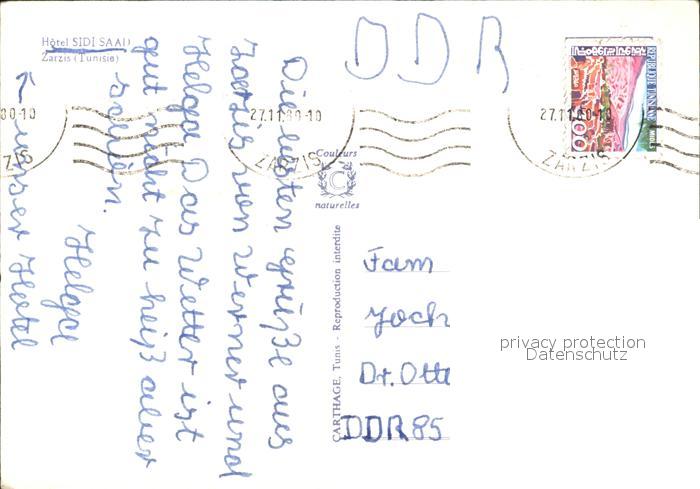 Hôtel SIDI SAAD
Zarzis (Tunisie)
DDR
27.11.80-10
ZARZIS
27.11.80-10
ZARZIS
80-10
ZIS
REPUBLIQUE TUNISIENNE
Couleurs
C
naturelles
CARTHAGE, Tunis - Reproduction interdite
Die besten Grüße aus
Zarzis von Werner und
Helga. Das Wetter ist
gut nicht zu heiß aber
schön.
Helga
← unser Hotel
Fam
Joch
Dr. Otto
DDR 85
privacy protection
Datenschutz